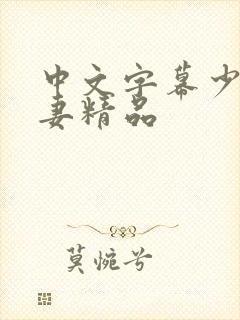 中文字幕少
妻精品
莫惋兮